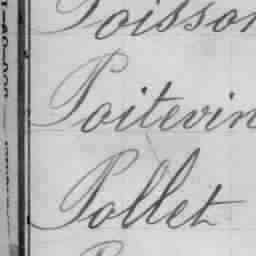 Poisson
Poitevin
Pollet